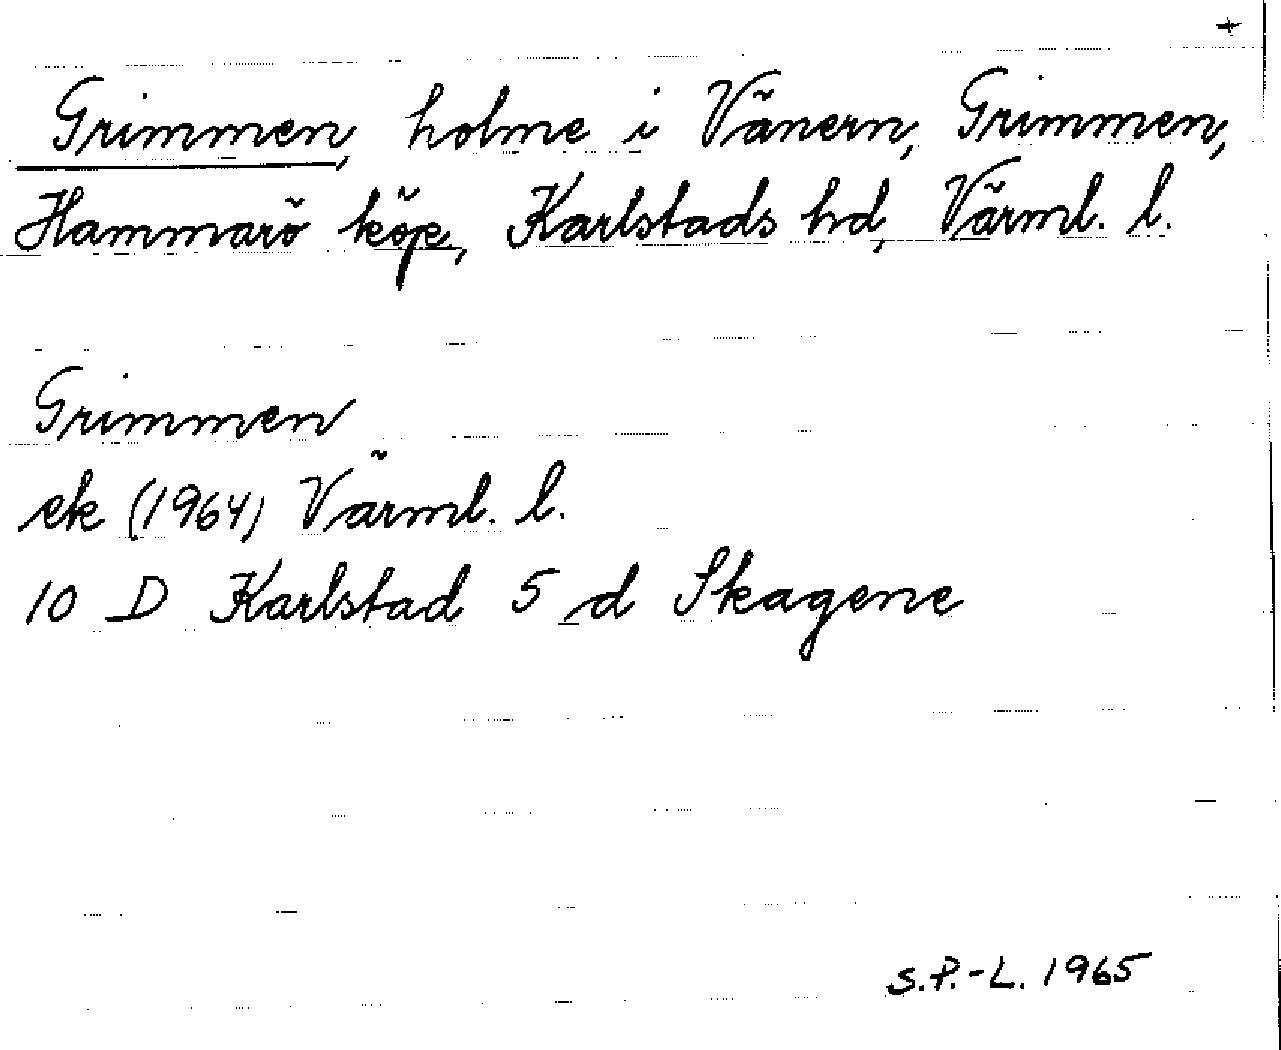 +
Grimmen, holme i Vänern, Grimmen,
Hammarö köp, Karlstads hd, Värml. l.
Grimmen
ek (1964) Värml. l.
10 D Karlstad 5 d Skagene
S.P.-L. 1965